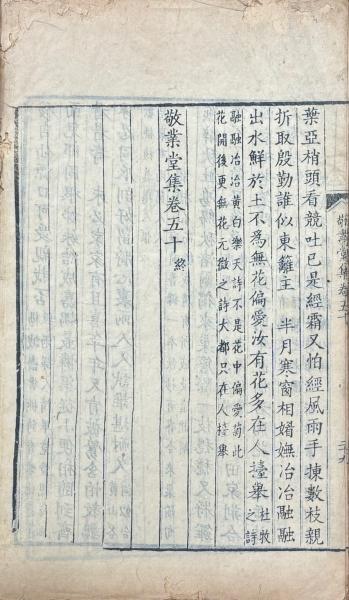 葉亞梢頭看競吐已是經霜又怕經風雨手揀數枝親
折取殷勤誰似東籬主 半月寒窗相媚嫵冶冶融融
出水鮮於土不為無花偏愛汝有花多在人擡舉杜牧之詩
融融冶冶黃白樂天詩不是花中偏愛菊此
花開後更無花元微之詩大都只在人擡舉
敬業堂集卷五十 終
敬業堂集卷五十